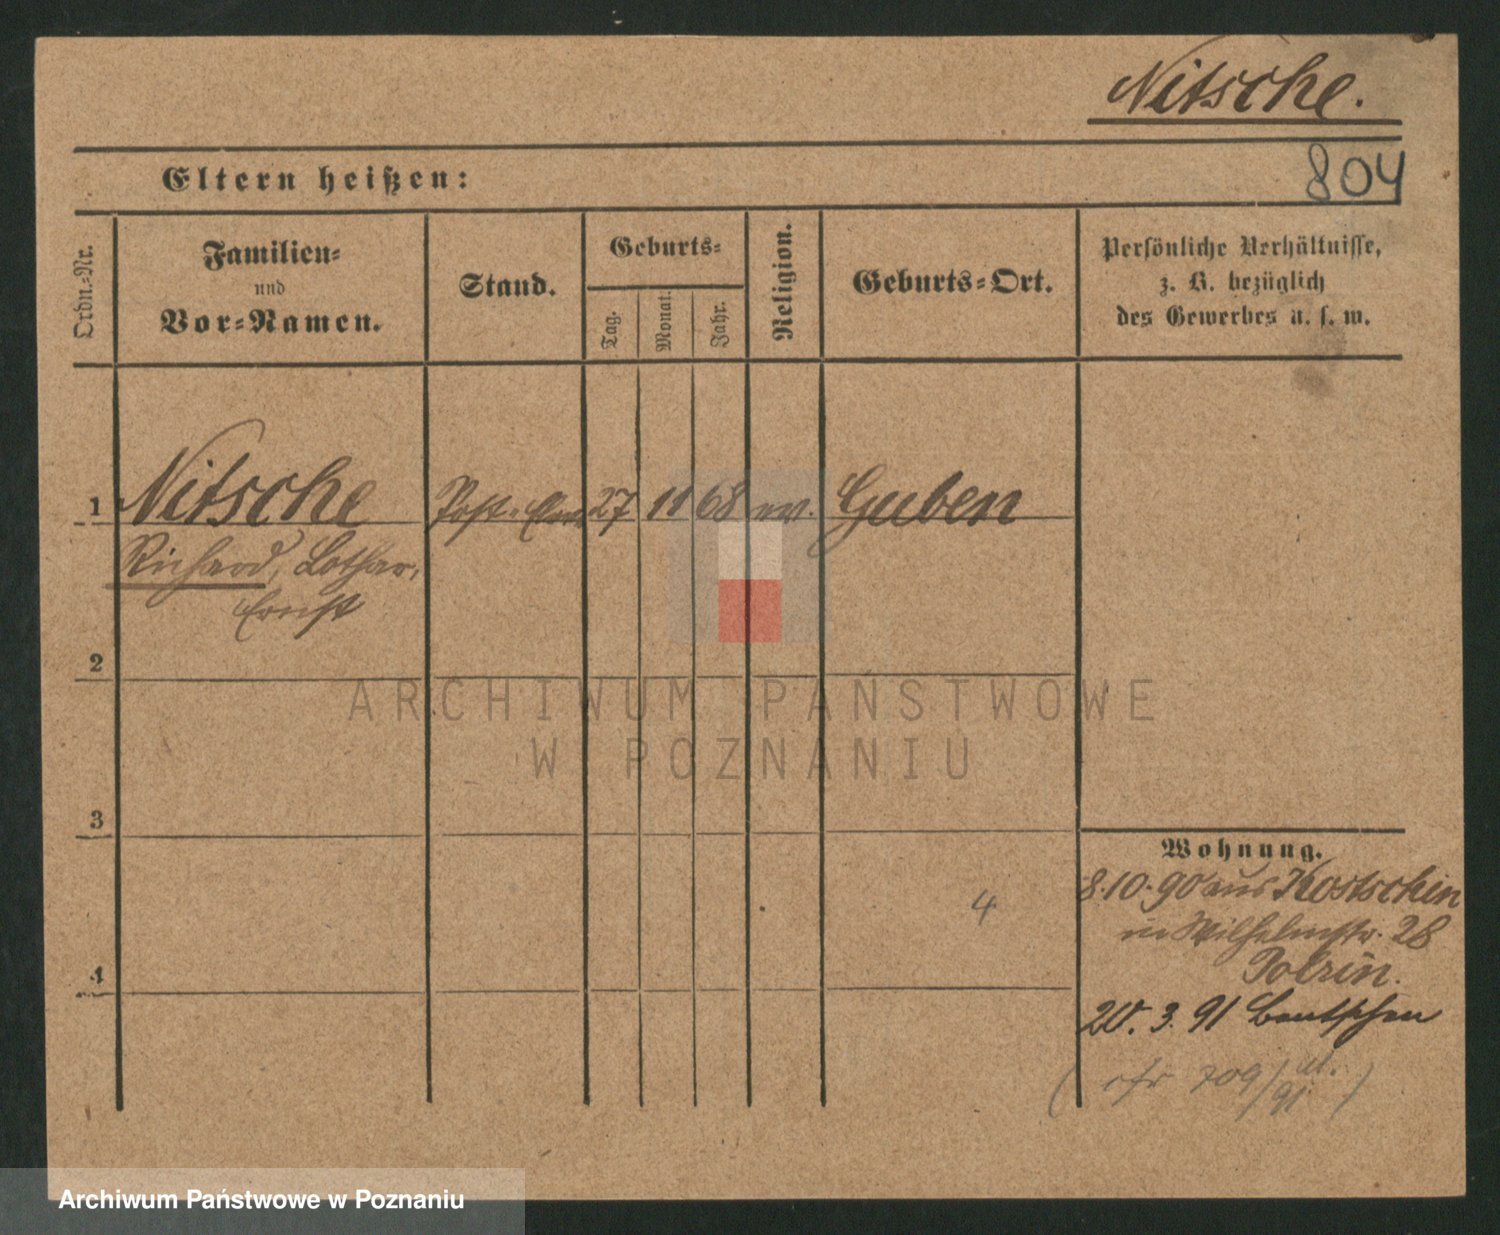 Nitsche.
804
Eltern heißen:
Ordn.-Nr.
Familien-
und
Vor-Namen.
Stand.
Geburts-
Tag.
Monat.
Jahr.
Religion.
Geburts-Ort.
Persönliche Verhältnisse,
z. B. bezüglich
des Gewerbes u. s. w.
1 Nitsche Post. 27 11 68 ev. Guben
Richard, Lothar,
Ernst
2
ARCHIWUM PAŃSTWOWE
W POZNANIU
3
Wohnung.
8.10.90 aus Kostschin
in Wilhelmstr. 28
4
4
20. 3. 91 Bentschen
709/91
Archiwum Państwowe w Poznaniu